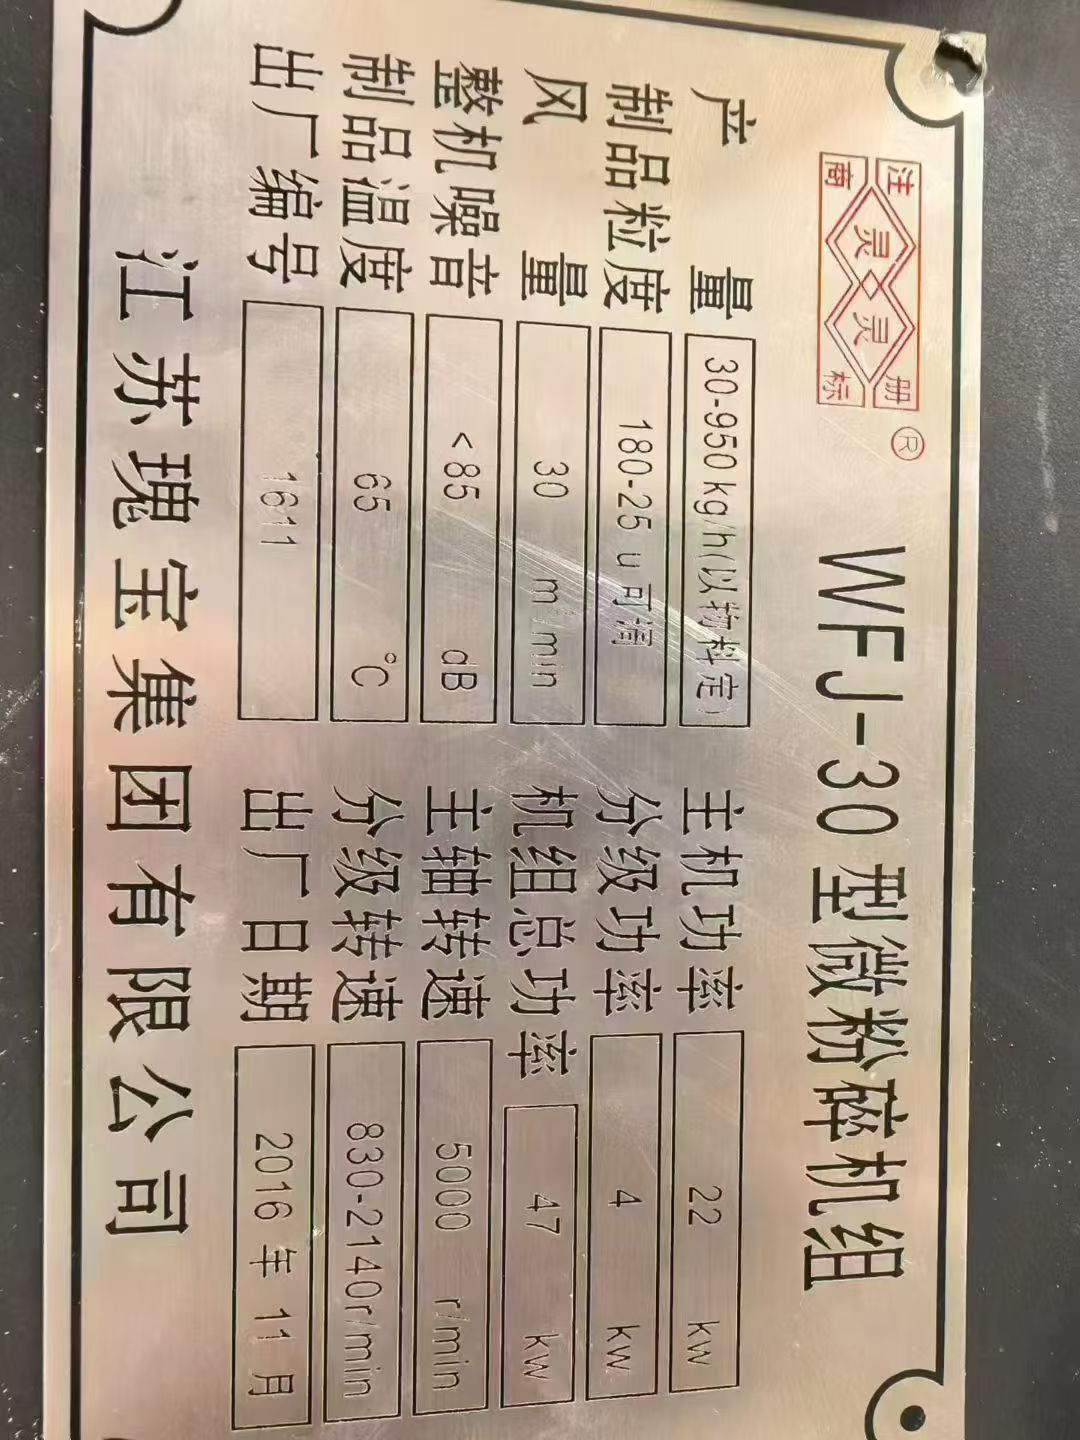 注册
灵灵
商标
®
WFJ-30型微粉碎机组
产量 30-950kg/h(以物料定) 主机功率 22 kw
制品粒度 180-25u可调 分级功率 4 kw
风量 30 m³/min 机组总功率 47 kw
整机噪音 <85 dB 主轴转速 5000 r/min
制品温度 65 ℃ 分级转速 830-2140r/min
出厂编号 1611 出厂日期 2016年11月
江苏瑰宝集团有限公司